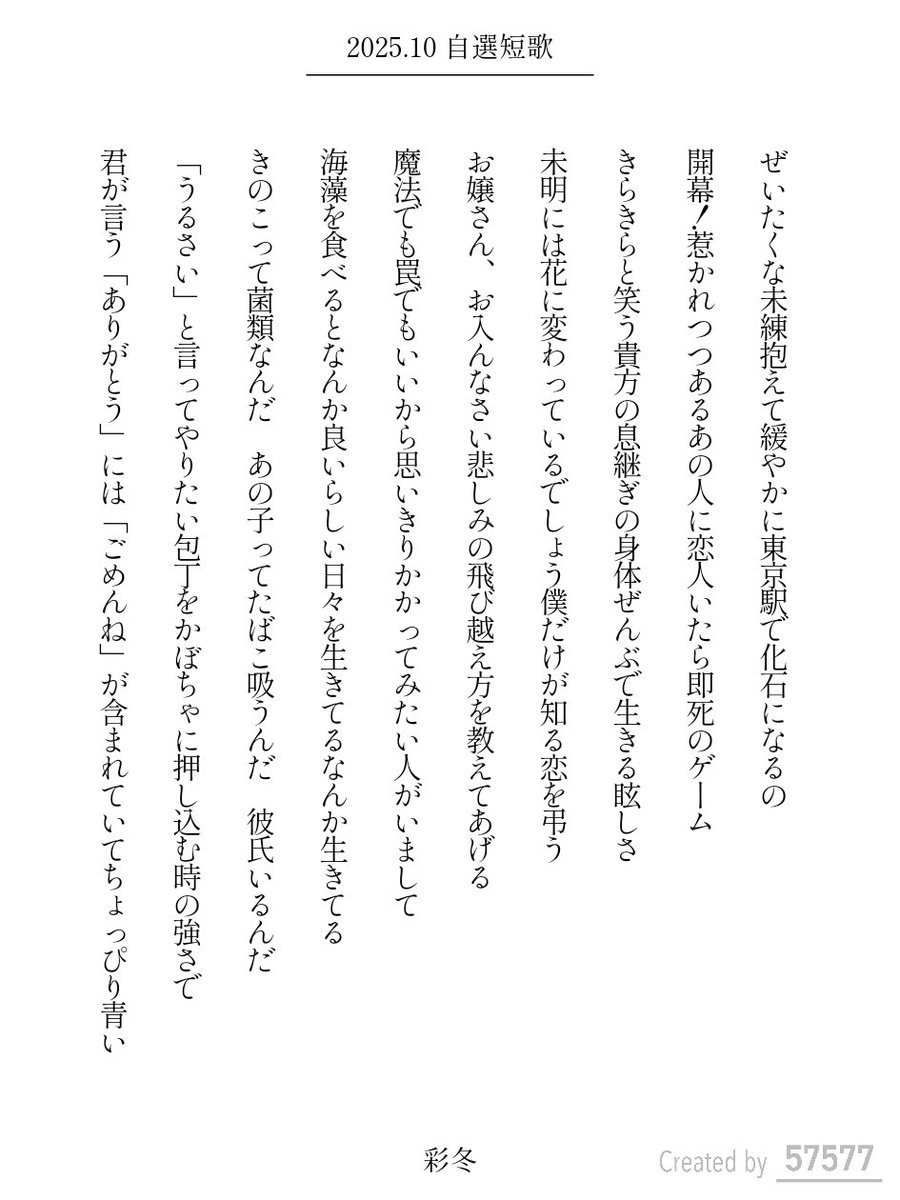 2025.10 自選短歌
ぜいたくな未練抱えて緩やかに東京駅で化石になるの
開幕！惹かれつつあるあの人に恋人いたら即死のゲーム
きらきらと笑う貴方の息継ぎの身体ぜんぶで生きる眩しさ
未明には花に変わっているでしょう僕だけが知る恋を弔う
お嬢さん、お入んなさい悲しみの飛び越え方を教えてあげる
魔法でも罠でもいいから思いきりかかってみたい人がいまして
海藻を食べるとなんか良いらしい日々を生きてるなんか生きてる
きのこって菌類なんだ　あの子ってたばこ吸うんだ　彼氏いるんだ
「うるさい」と言ってやりたい包丁をかぼちゃに押し込む時の強さで
君が言う「ありがとう」には「ごめんね」が含まれていてちょっぴり青い
彩冬
Created by 57577